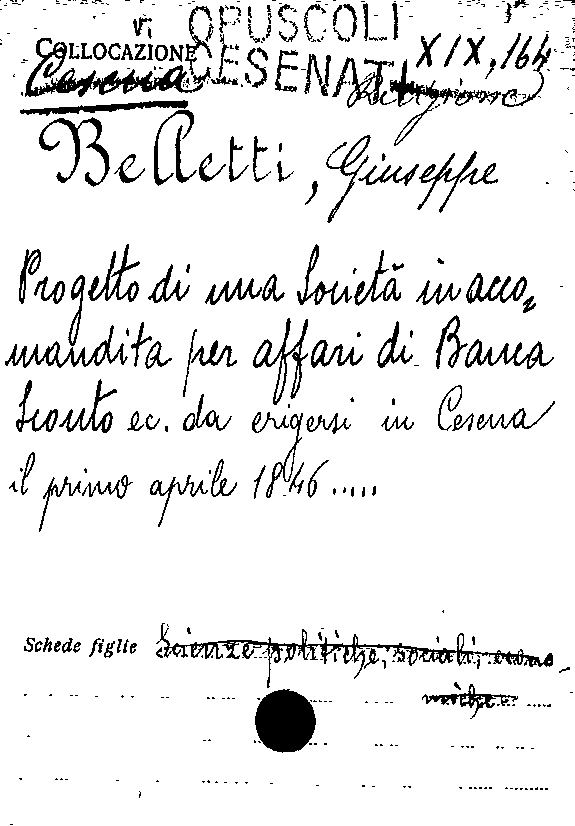 vi OPUSCOLI
COLLOCAZIONE CESENATI XIX, 164
Cesena Religione
Belletti, Giuseppe
Progetto di una Società in acco-
mandita per affari di Banca
Sconto ec. da erigersi in Cesena
il primo aprile 1846.....
Schede figlie Scienze politiche, sociali, econo-
miche